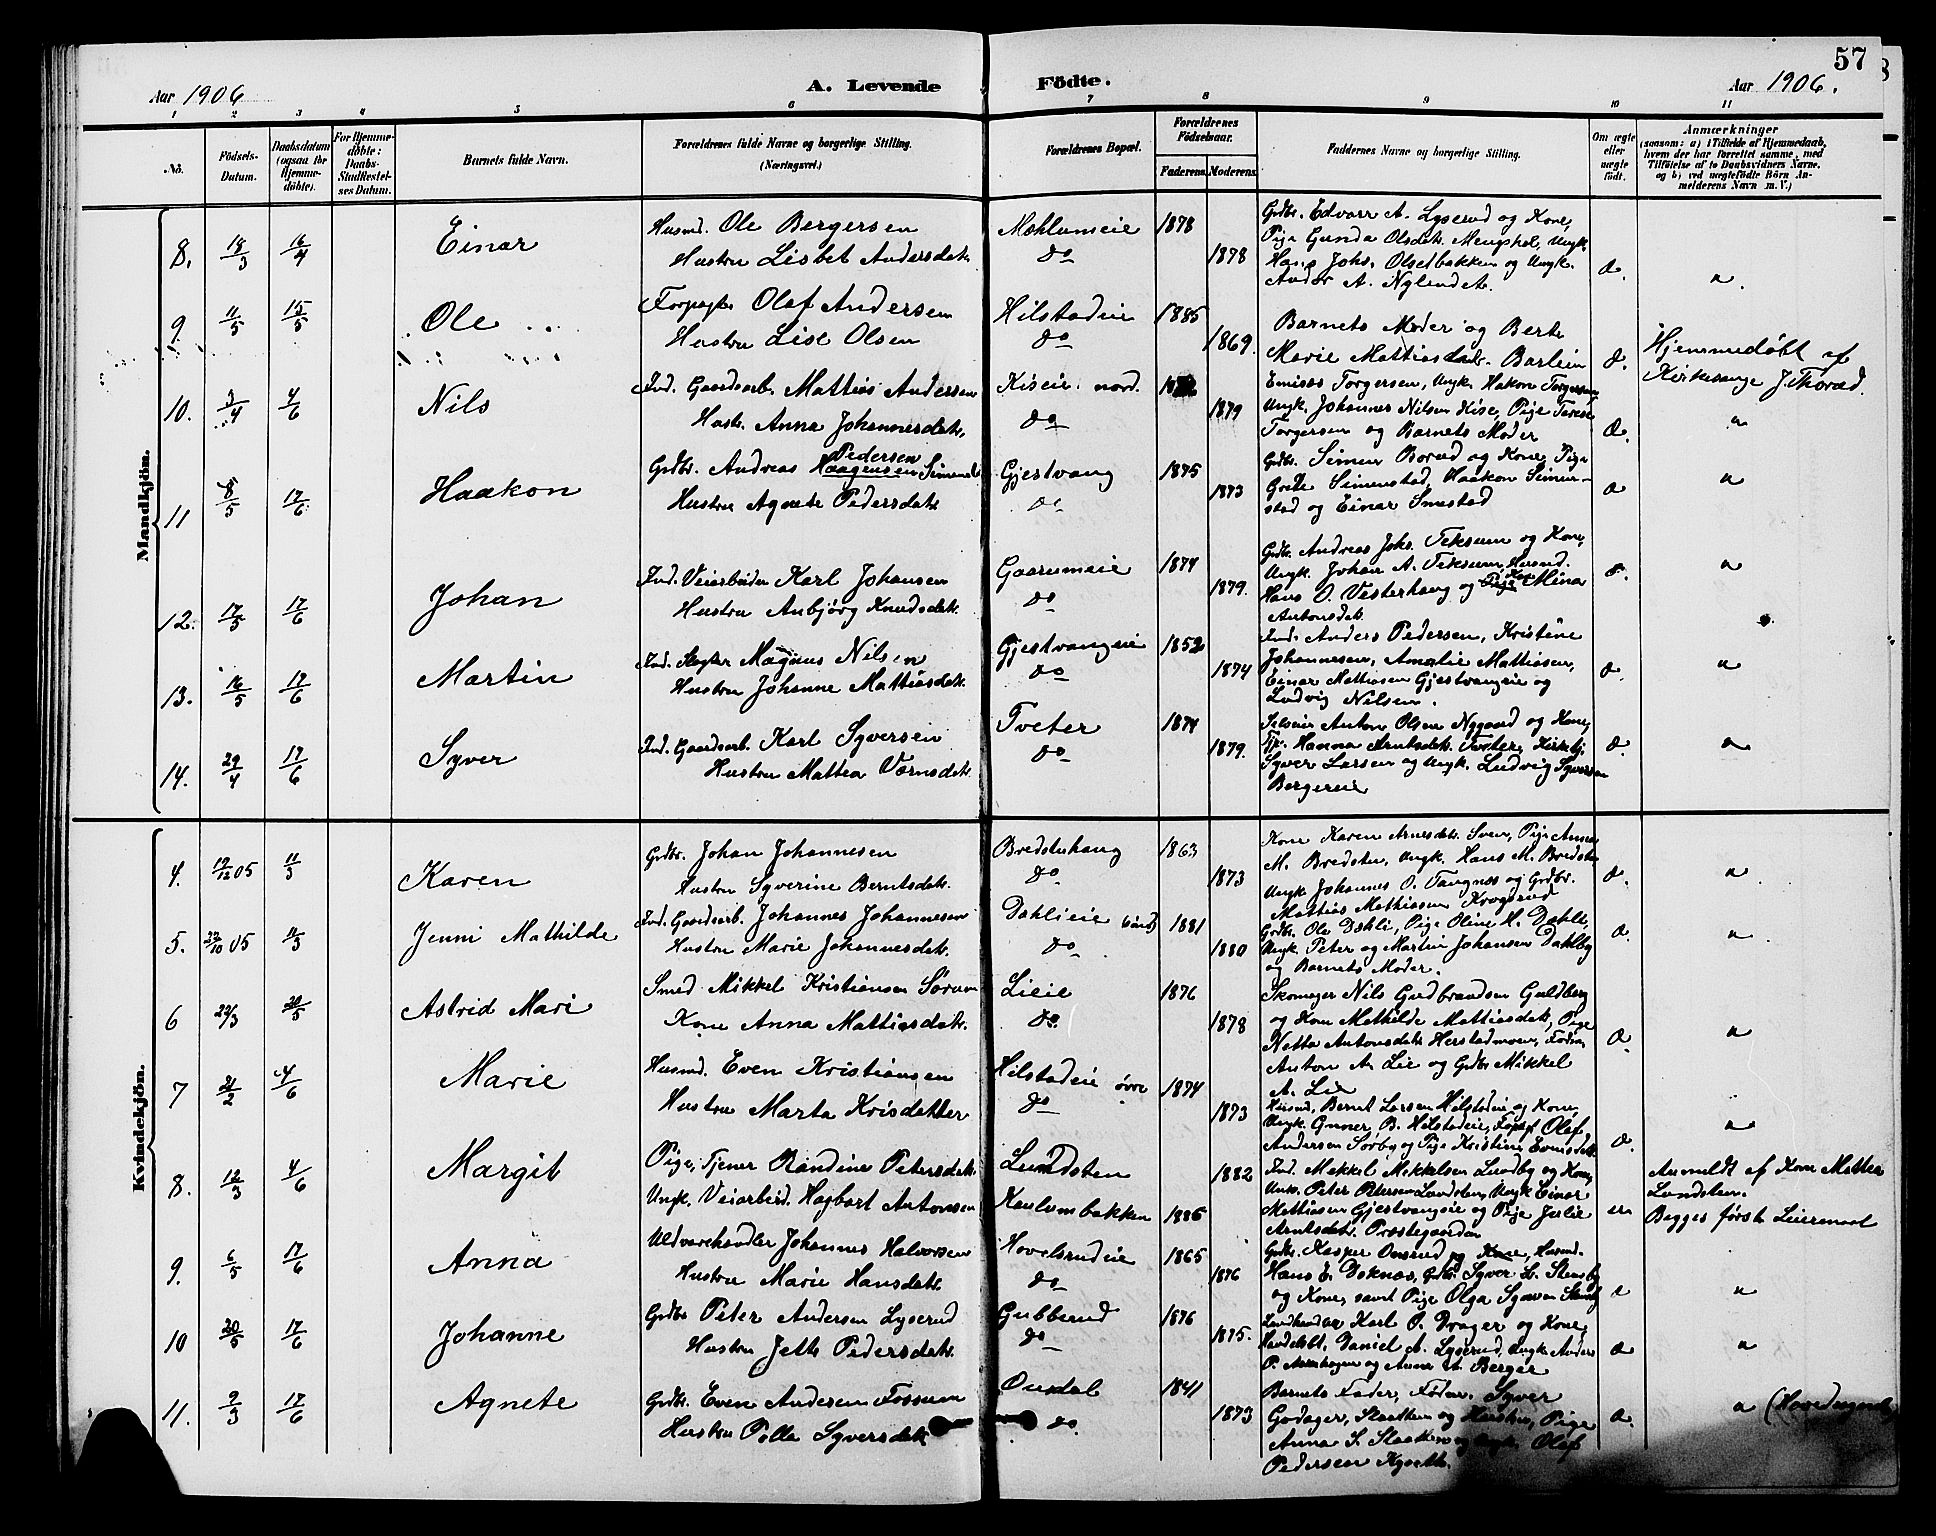 57
Aar 1906
A. Levende
Födte.
Aar 1906.
1 2 3 4 5 6 7 8 9 10 11
No.
Födsels-Datum.
Daabsdatum (ogsaa for Hjemme-döbte).
For Hjemme-döbte: Daabs-Stadfæstel-ses Datum.
Barnets fulde Navn.
Forældrenes fulde Navne og borgerlige Stilling.
(Næringsvei.)
Forældrenes Bopæl.
Forældrenes Födselsaar.
Faderens. Moderens.
Faddernes Navne og borgerlige Stilling.
Om ægte eller uægte födt.
Anmærkninger
(saasom: a) i Tilfælde af Hjemmedaab,
hvem der har forrettet samme, med
Tilföielse af to Daabsvidners Navne,
og b) ved uægtefödte Börn An-
melderens Navn m. V.)
Mandkjön.
8. 18/3 16/4 Einar
Husmd. Ole Bergersen
Hustru Lisbet Andersdatr.
Mæhlumeie do 1878 1878
Grdbr. Edvart A. Lyserud og Kone,
Pige Gunda Olsdatr. Mengshol, Ungk.
Hans Johs. Olsetbakken og Ungk.
Andor A. Nylendet.
æ. "
9. 11/5 15/5 Ole
Forpagter Olaf Andersen
Hustru Lise Olsen
Hilstadeie do 1885 1869.
Barnets Moder og Berte
Marie Mattiasdatr. Barlien
æ.
Hjemmedøbt af
Kirkesanger J. Thorud.
10. 3/4 4/6 Nils
Ind. Gaardsarb. Mattias Andersen
Hustr. Anna Johannesdatr.
Kiseie nord. do 1879
Torgersen, Ungk. Hakon Torgersen,
Ungk. Johannes Nilsen Kise, Pige
Torgersen og Barnets Moder
æ. "
11 8/5 17/6 Haakon
Pedersen
Grdbr. Andreas Haagensen
Hustru Agnete Pedersdatr.
Gjestvang do 1875 1873
Grdbr. Simen Borud og Kone, Pige
Grete Simenstad, Haakon Simen-
stad og Einar Smestad
æ "
12. 17/5 17/6 Johan
Ind. Veiarbeider Karl Johansen
Hustru Anbjørg Knudsdatr.
Gaarumeie do 1874 1879.
Grdbr. Andreas Johs. Teksum og Kone,
Ungk. Johan A. Teksum, Husmd.
Hans O. Vesterhaug og Pige Kone Mina
Antonsdatr.
æ. "
13. 16/5 17/6 Martin
Ind. Slagter Magnus Nilsen
Hustru Johanne Mattiasdatr.
Gjestvangeie do 1852 1874
Ind. Anders Pedersen, Kristine
Johannesen, Amalie Mattiasen,
Einar Mattiasen Gjestvangeie og
Ludvig Nilsen.
æ. "
14. 29/4 17/6 Syver
Ind. Gaardsarb. Karl Syversen
Hustru Mattea Værnsdatr.
Tveter do 1874 1879.
Selveier Anton Olsen Nygaard og Kone,
Tj. Hanna Arntsdatr. Tveter, Kirketj.
Syver Larsen og Ungk. Ludvig Syversen
Bergereie
æ. "
Kvindekjön.
4. 19/12 05 11/3 Karen
Grdbr. Johan Johannesen
Hustru Syverine Berntsdatr.
Breddehaug do 1863 1873
Kone Karen Arnesdatr. Sveen, Pige Anna
M. Bredsten, Ungk. Hans M. Bredsten
Ungk Johannes O. Tangnæs og Grdbr.
Mattias Mathiasen Krogsrud
æ. "
5. 22/10 05 11/3 Jenni Mathilde
Ind. Gaardsarb. Johannes Johannesen
Hustru Marie Johannesdatr.
Dahlieie do 1881 1880
Grdbr. Ole Dæhli, Pige Oline H. Dæhli,
Ungk Peter og Martin Johansen Dahlby
og Barnets Moder.
æ. "
6 22/3 20/5 Astrid Mari
Smed Mikkel Kristiansen Sørum
Kone Anna Mattiasdatr.
Lieie do. 1876 1878
Skomager Nils Gudbrandsen Guldberg
og Kone Mathilde Mattiasdatr, Pige
Netta Antonsdatr Herstadmoen, Føder.
Anton A. Lie og Grdbr Mikkel
A. Lie
æ. "
7 21/2 4/6 Marie
Husmd. Even Kristiansen
Hustru Marta Krisdatter
Hilstadeie øvre do 1874 1873
Husmd. Bernt Larsen Hilstadeie og Kone,
Ungk. Gunner B. Hilstadeie, Forpagt Olaf
Andersen Sørby og Pige Kristine Evensdatr
æ. "
8. 12/3 4/6 Margit
Pige, Tjener Randine Petersdatr.
Ungk. Veiarbeid. Hagbart Antonsen
Lundsten
Kaulumbakken 1882 1886
Ind. Mikkel Mikkelsen Lundby og Kone,
Ungk. Peter Petersen Lundsten, Ungk Einar
Mattiasen Gjestvangeie og Pige Julie
Arntsdatr. Præstegaarden
u
Anmeldt af Kone Mattea
Lundsten.
Begges første Leiermaal
9. 6/5 17/6 Anna
Uldvarehandler Johannes Halvorsen
Hustru Marie Hansdatr.
Hovelsrudeie do 1865 1876
Grdbr. Kasper Onsrud og Kone, Husmd.
Hans E. Doknæs, Grdbr. Syver L. Stensby
og Kone, samt Pige Olga Syversen
æ "
10 20/5 17/6 Johanne
Grdbr Peter Andersen Lyserud
Hustru Jette Pedersdatr.
Gubberud do 1876 1875.
Landhandler Karl O. Drager og Kone,
Handelsbt. Daniel A. Lyserud, Ungk Anders
P. og Anne A. Berger
æ "
11. 9/3 17/6 Agnete
Grdbr. Even Andersen Fossum
Hustru Pelle Syversdatr.
Ousdal do. 1841 1873
Barnets Fader, Føder. Syver
Godager, Staatten og Hustru, Pige
Anna S. Staatten og Ungk. Olaf
Pedersen Kyset.
æ. "